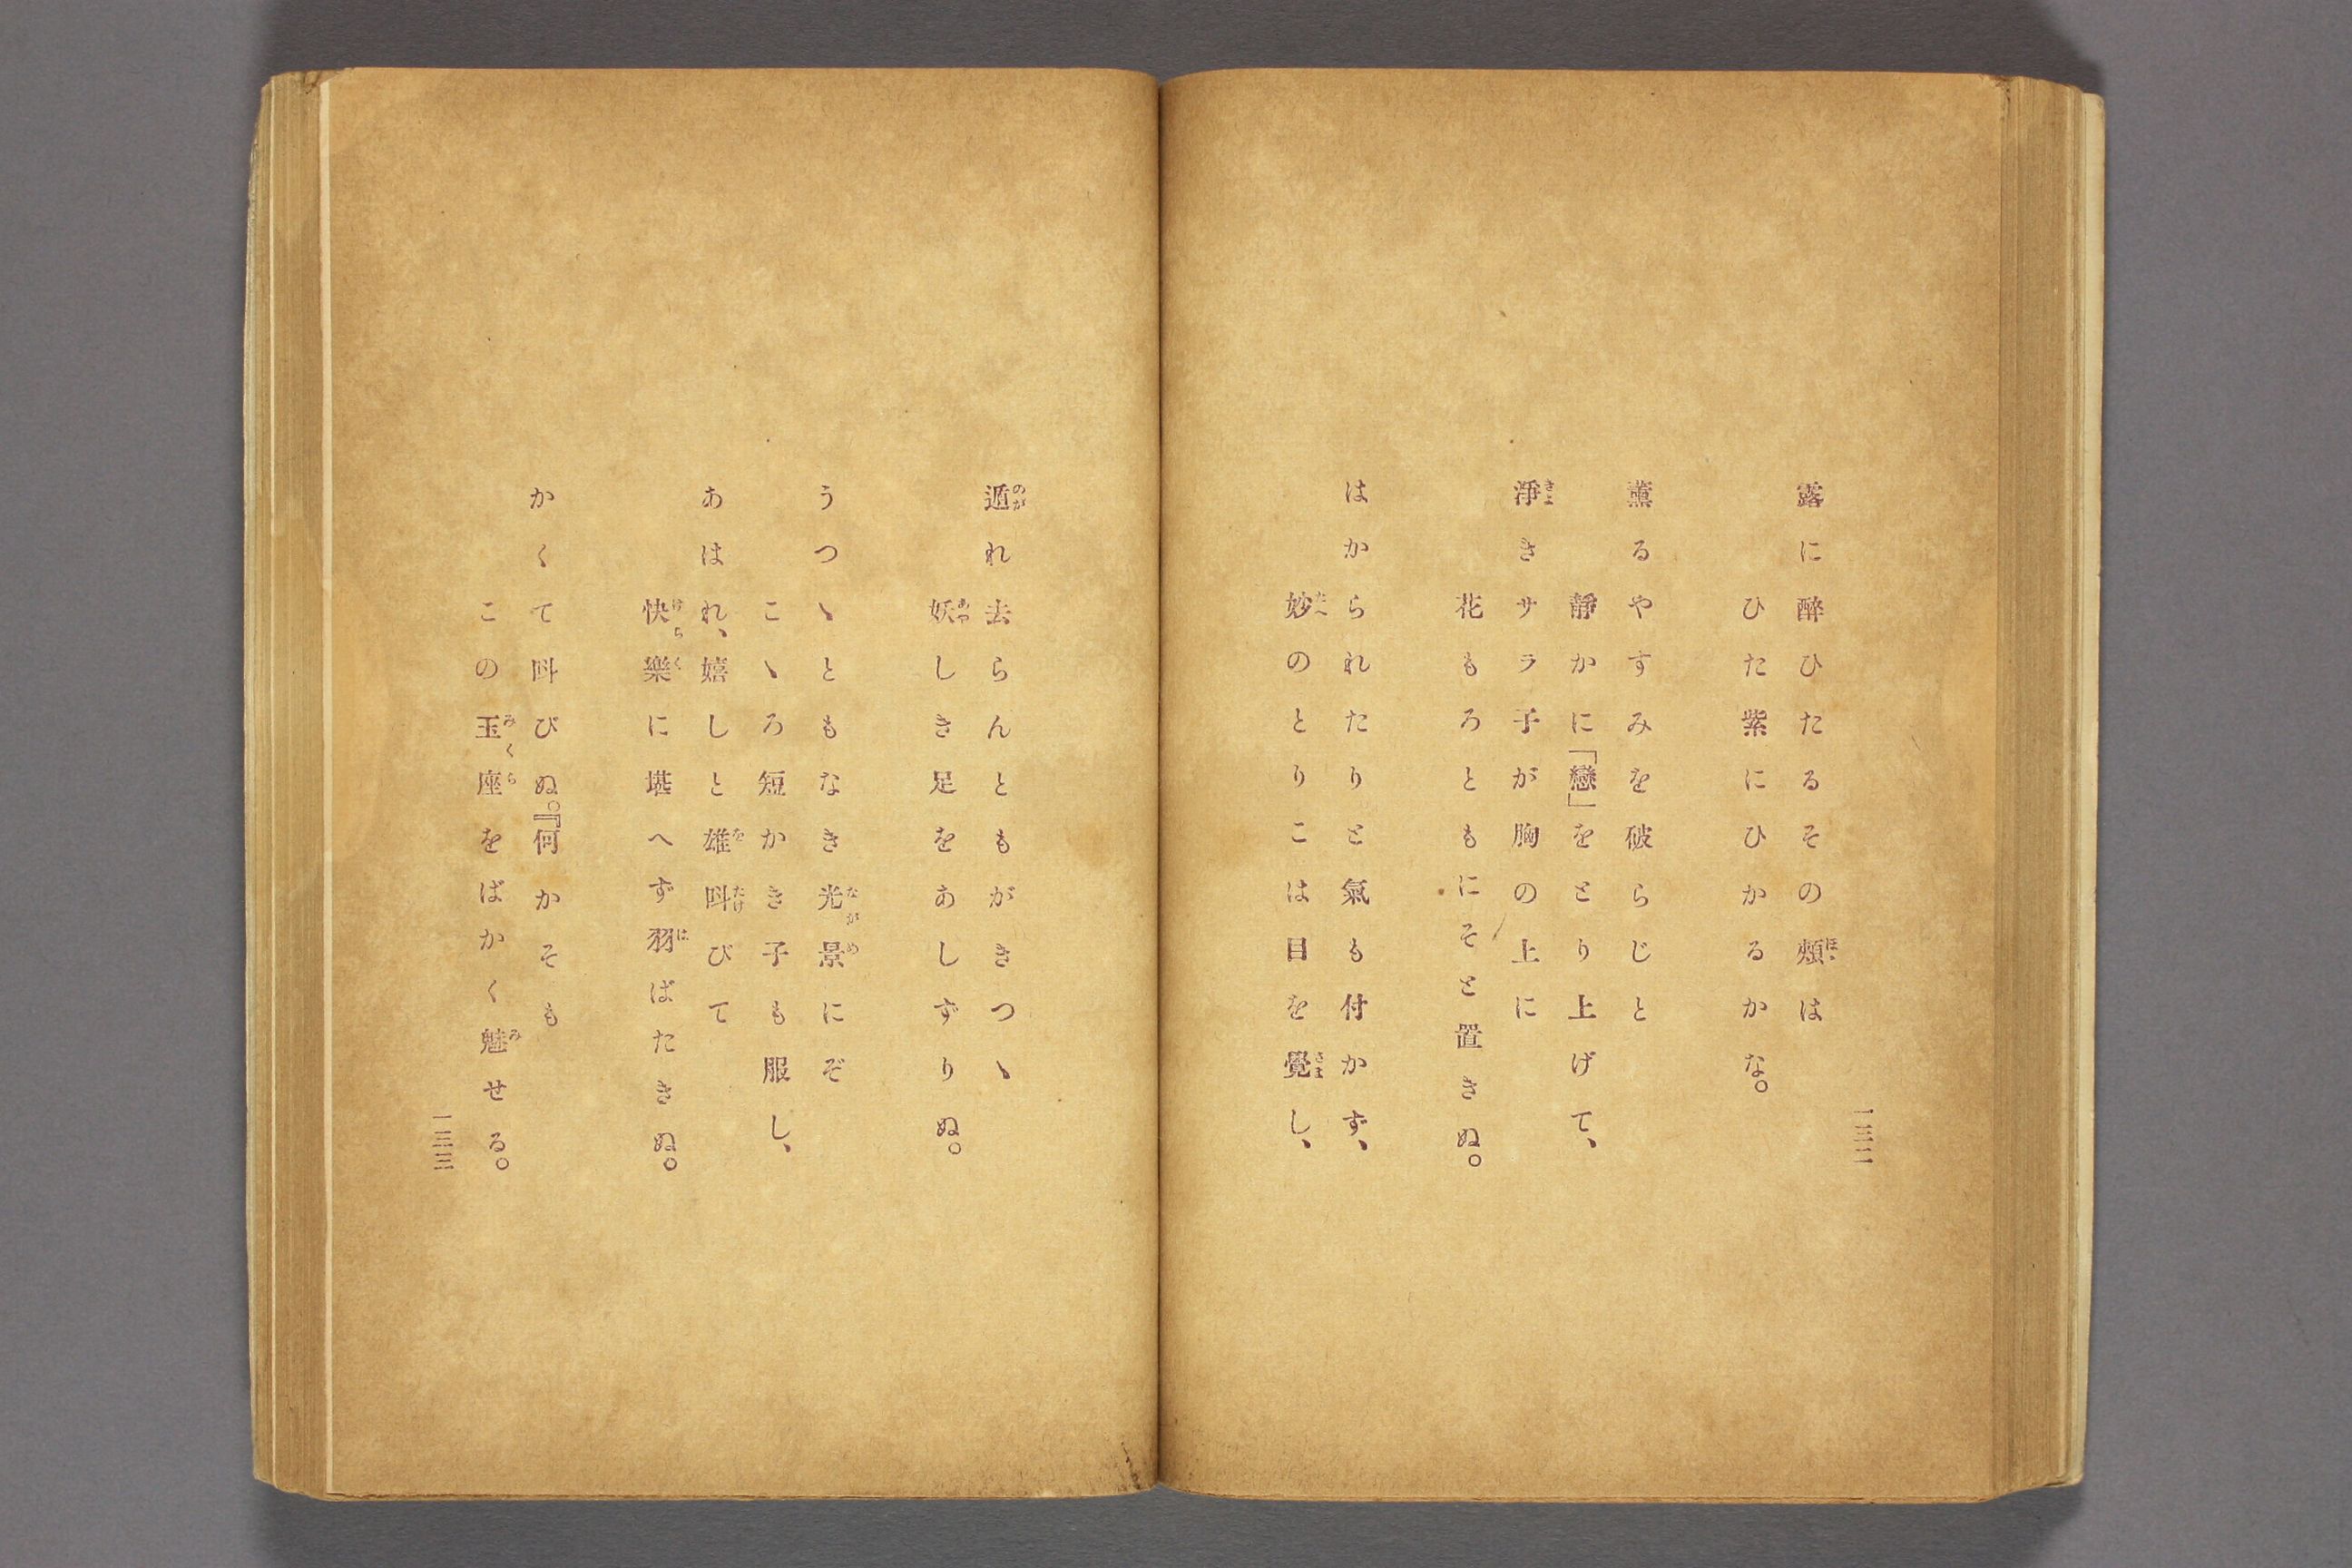 一三二
露に醉ひたるその頰は
ひた紫にひかるかな。
薫るやすみを破らじと
靜かに「戀」をとり上げて、
淨きサラ子が胸の上に
花もろともにそと置きぬ。
はかられたりと氣も付かず、
妙のとりこは目を覺し、
遁れ去らんともがきつゝ
妖しき足をあしずりぬ。
うつゝともなき光景にぞ
こゝろ短かき子も服し、
あはれ、嬉しと雄叫びて
快樂に堪へず羽ばたきぬ。
かくて叫びぬ。『何かそも
この玉座をばかく魅せる。
一三三